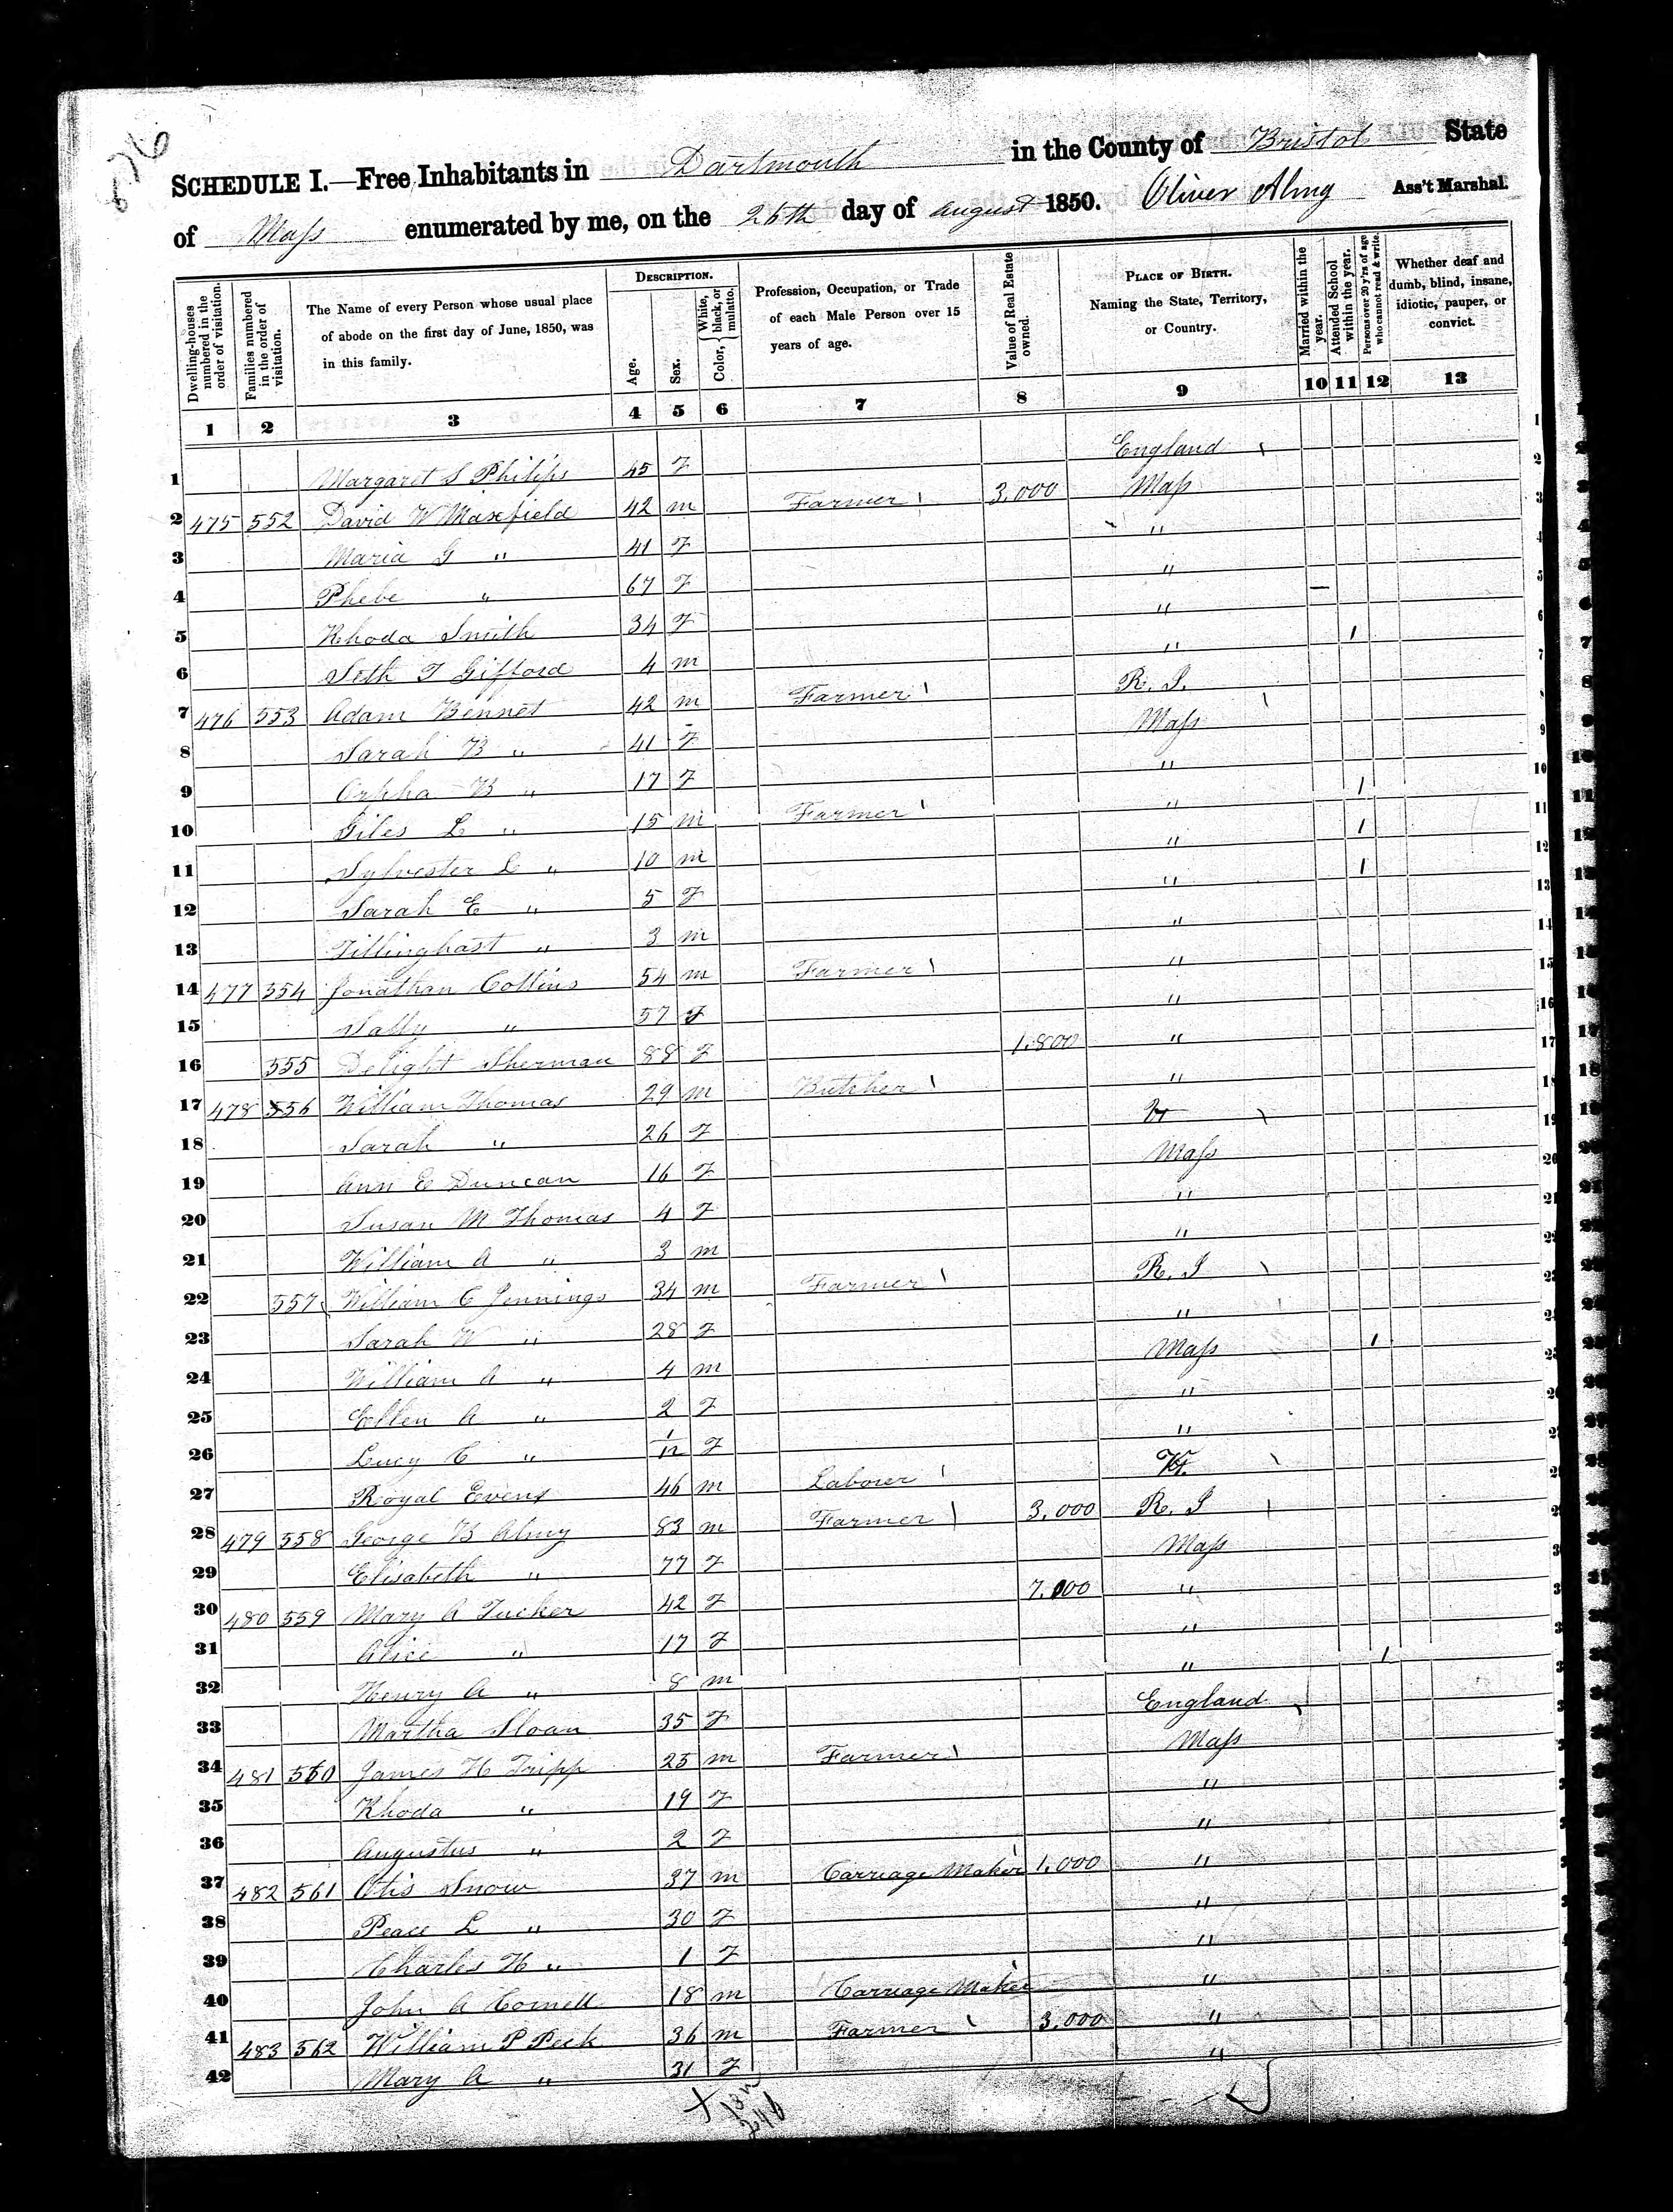 SCHEDULE I.—Free Inhabitants in Dartmouth in the County of Bristol State
of Mass enumerated by me, on the 26th day of August 1850. Oliver Almy Ass't Marshal.
Dwelling-houses numbered in the order of visitation.
Families numbered in the order of visitation.
The Name of every Person whose usual place of abode on the first day of June, 1850, was in this family.
DESCRIPTION.
Age.
Sex.
Color, { White, black, or mulatto.
Profession, Occupation, or Trade of each Male Person over 15 years of age.
Value of Real Estate owned.
PLACE OF BIRTH.
Naming the State, Territory, or Country.
Married within the year.
Attended School within the year.
Persons over 20 y'rs of age who cannot read & write.
Whether deaf and dumb, blind, insane, idiotic, pauper, or convict.
1 2 3 4 5 6 7 8 9 10 11 12 13
1 Margaret S Philips 45 F England
2 475 552 David W Maxfield 42 m Farmer 3.000 Mass
3 Maria G " 41 F "
4 Phebe " 67 F "
5 Rhoda Smith 34 F " —
6 Seth T Gifford 4 m " 1
7 476 553 Adam Bennet 42 m Farmer R. I.
8 Sarah B " 41 F Mass
9 Orpha B " 17 F "
10 Giles L " 15 m Farmer " 1
11 Sylvester L " 10 m " 1
12 Sarah E " 5 F " 1
13 Tillinghast " 3 m "
14 477 554 Jonathan Collins 54 m Farmer "
15 Sally " 57 F "
16 555 Delight Sherman 88 F 1.800 "
17 478 556 William Thomas 29 m Butcher "
18 Sarah " 26 F Vt
19 Ann E Duncan 16 F Mass
20 Susan M Thomas 4 F "
21 William A " 3 m "
22 557 William C Jennings 34 m Farmer R. I
23 Sarah W " 28 F "
24 William A " 4 m Mass 1
25 Ellen A " 2 F "
26 Lucy C " 1/12 F "
27 Royal Evens 46 m Laborer Vt.
28 479 558 George B Almy 83 m Farmer 3.000 R. I
29 Elisabeth " 77 F Mass
30 480 559 Mary A Tucker 42 F 7.000 "
31 Alice " 17 F "
32 Henry A " 8 m " 1
33 Martha Sloan 35 F England
34 481 560 James H Tripp 25 m Farmer Mass
35 Rhoda " 19 F "
36 Augustus " 2 F "
37 482 561 Otis Snow 37 m Carriage Maker 1.000 "
38 Peace L " 30 F "
39 Charles H " 1 F "
40 John A Cornell 18 m Carriage Maker "
41 483 562 William P Peck 36 m Farmer 3.000 "
42 Mary A " 31 F "